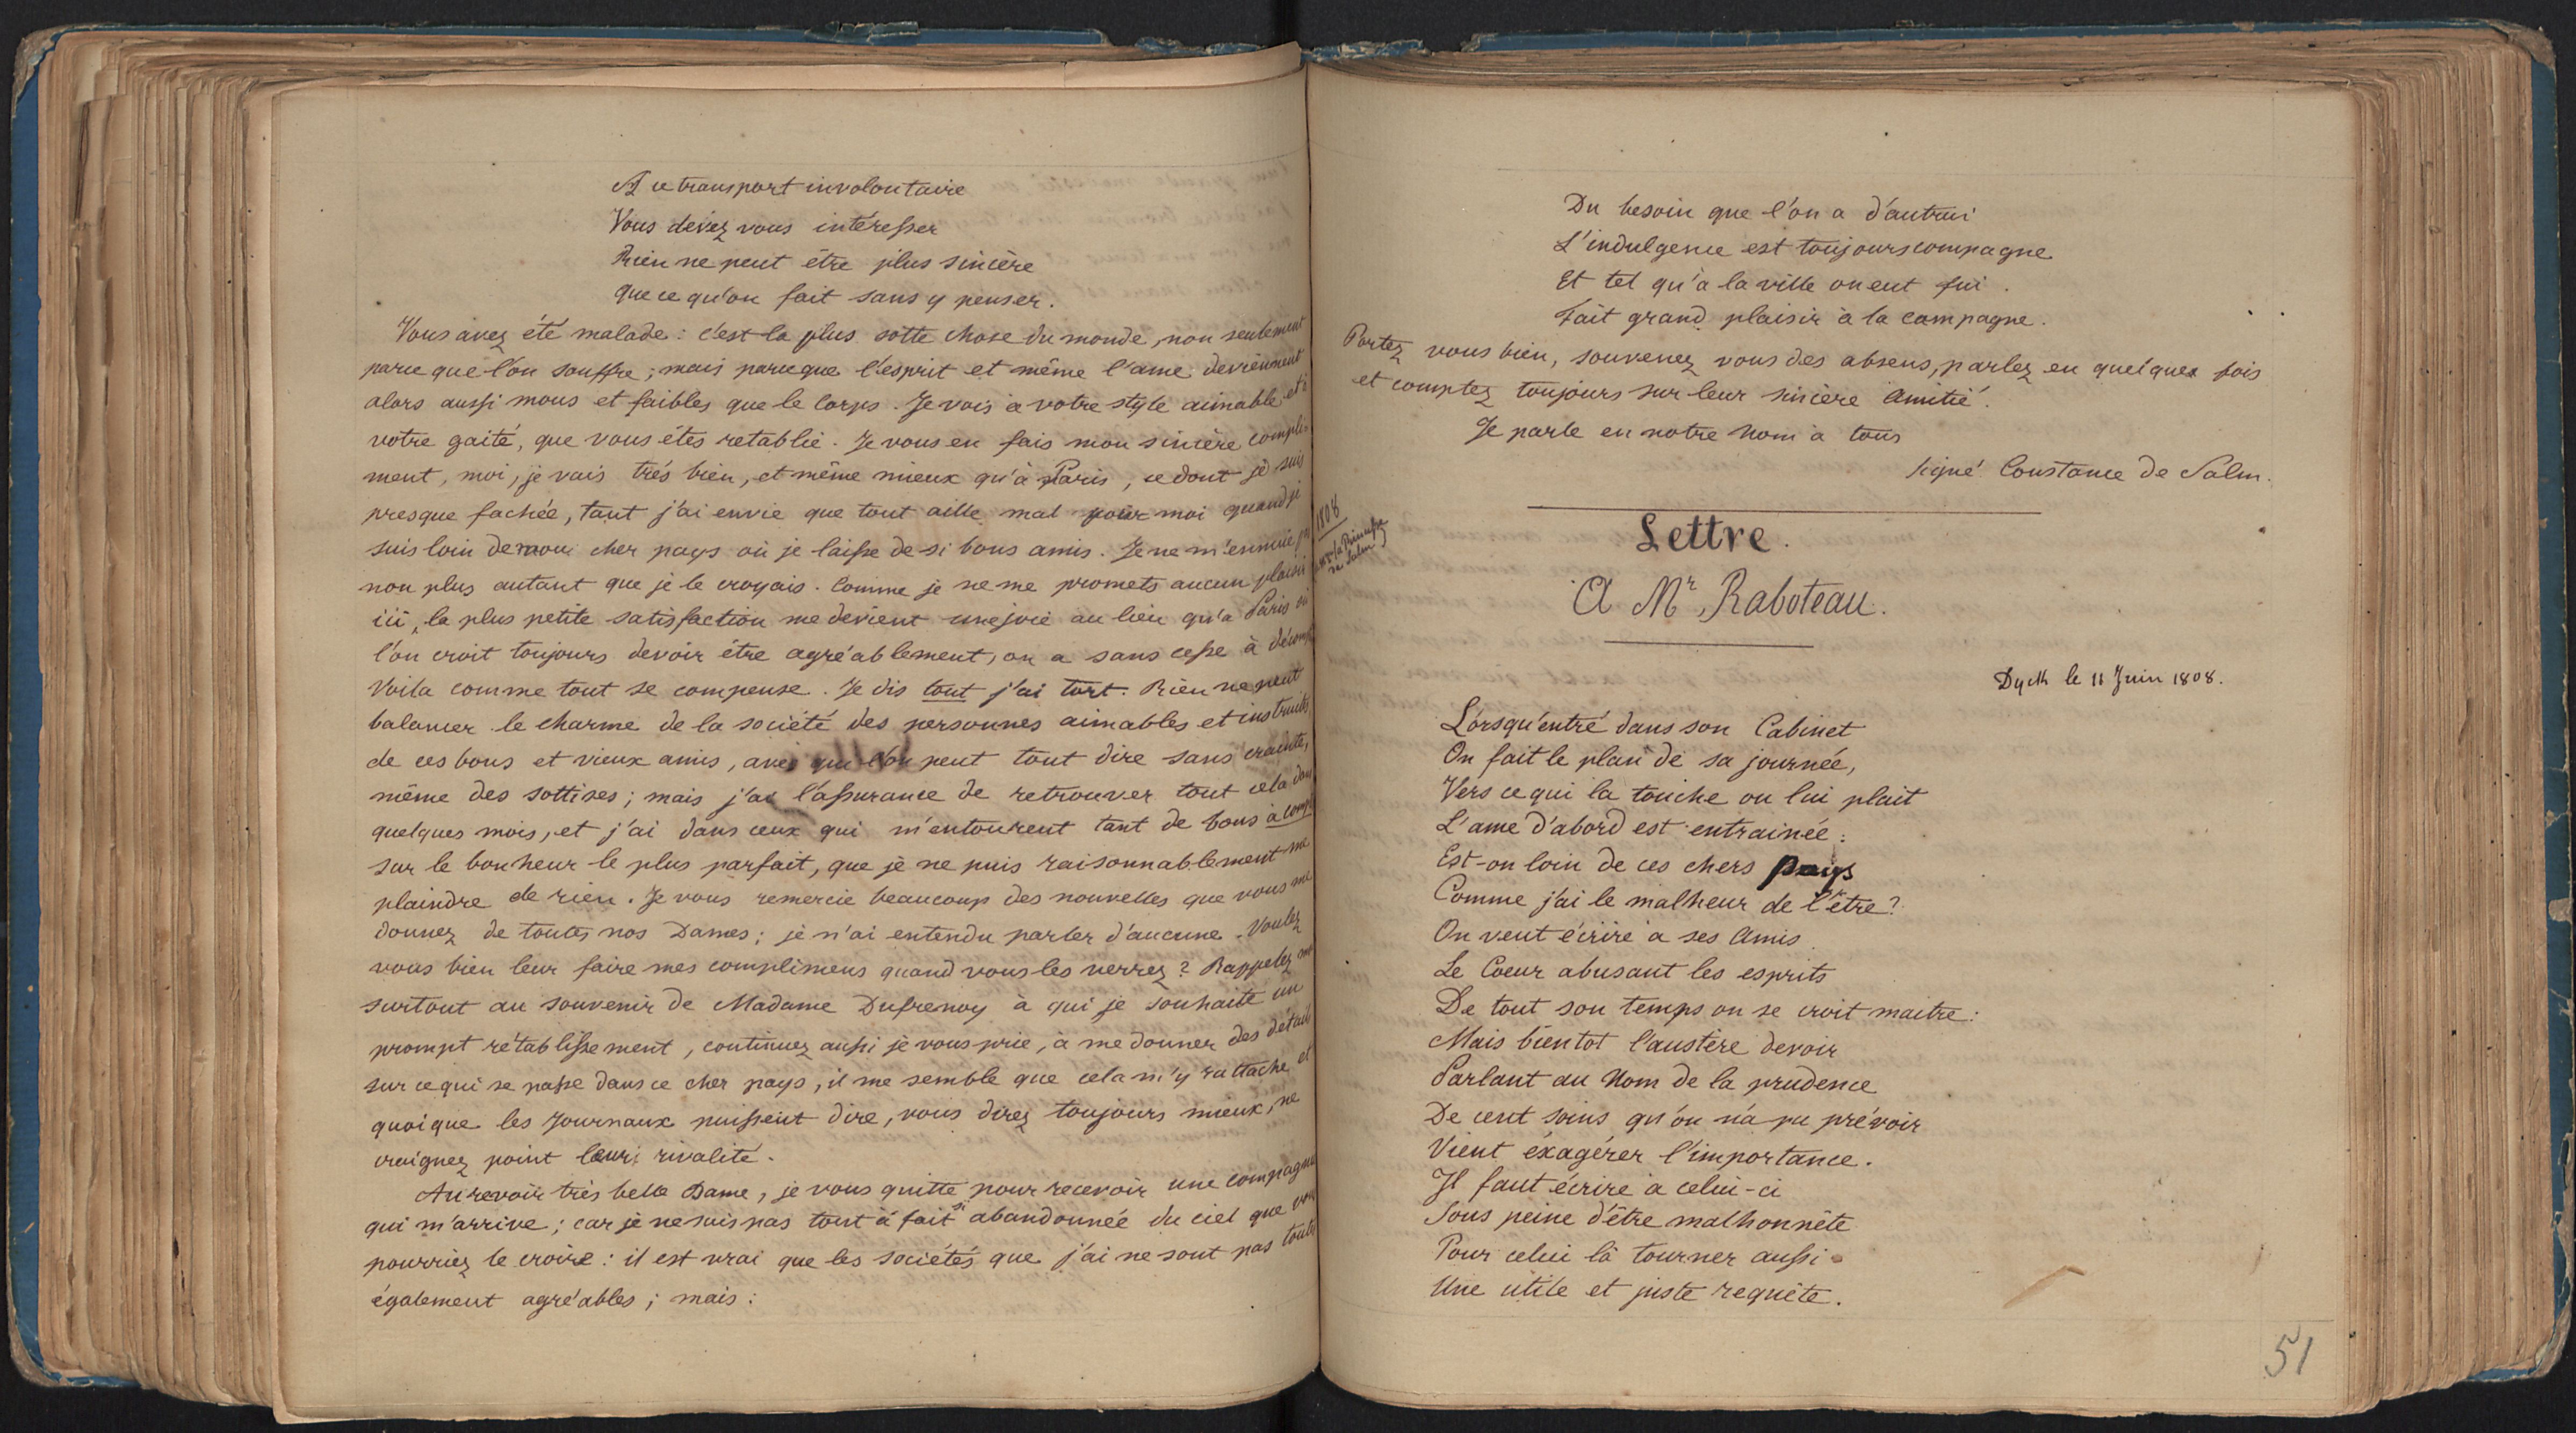 A ce transport involontaire
Vous devez vous intéresser
Rien ne peut être plus sincère
que ce qu'on fait sans y penser.
Vous avez été malade : c'est la plus sotte chose du monde, non seulement
parce que l'on souffre ; mais parceque l'esprit et même l'ame deviennent
alors aussi mous et faibles que le Corps. Je vois à votre style aimable et à
votre gaité, que vous êtes retablie. Je vous en fais mon sincère compli-
ment, moi, je vais très bien, et même mieux qu'à Paris, ce dont je suis
presque fachée, tant j'ai envie que tout aille mal pour moi quand je
suis loin de mon cher pays où je laisse de si bons amis. Je ne m'ennuie pas
non plus autant que je le croyais. Comme je ne me promets aucun plaisir
ici, la plus petite satisfaction me devient une joie au lieu qu'a Paris où
l'on croit toujours devoir être agréablement, on a sans cesse à décomp
Voila comme tout se compense. Je dis tout j'ai tort. Rien ne peut
balancer le charme de la société des personnes aimables et instruites
de ces bons et vieux amis, avec qui l'on peut tout dire sans crainte,
même des sottises ; mais j'ai l'assurance de retrouver tout cela dans
quelques mois, et j'ai dans ceux qui m'entourent tant de bons à compt
sur le bonheur le plus parfait, que je ne puis raisonnablement me
plaindre de rien. Je vous remercie beaucoup des nouvelles que vous me
donnez de toutes nos Dames ; je n'ai entendu parler d'aucune. Voulez
vous bien leur faire mes complimens quand vous les verrez ? Rappelez moi
surtout au souvenir de Madame Dufrenoy à qui je souhaite un
prompt rétablissement, continuez aussi je vous prie, à me donner des détails
sur ce qui se passe dans ce cher pays, il me semble que cela m'y rattache et
quoique les Journaux puissent dire, vous direz toujours mieux, ne
craignez point leur rivalité.
Au revoir très belle Dame, je vous quitte pour recevoir une compagnie
qui m'arrive ; car je ne suis pas tout à fait si abandonnée du ciel que vous
pourriez le croire : il est vrai que les sociétés que j'ai ne sont pas toutes
également agréables ; mais :
Du besoin que l'on a d'autrui
L'indulgence est toujours compagne
Et tel qu'à la ville on eut fui.
Fait grand plaisir à la campagne.
Portez vous bien, souvenez vous des absens, parlez en quelques fois
et comptez toujours sur leur sincère Amitié.
Je parle en notre Nom à tous
signé Constance de Salm.
1808
la Princesse
de Salm
Lettre.
A Mr. Raboteau.
Dyck le 11 Juin 1808.
Lorsqu'entré dans son Cabinet
On fait le plan de sa journée,
Vers ce qui la touche ou lui plait
L'ame d'abord est entrainée :
Est-on loin de ces chers pays
Comme j'ai le malheur de l'être ?
On veut écrire a ses Amis
Le Coeur abusant les esprits
De tout son temps on se croit maitre :
Mais bientot l'austère devoir
Parlant au Nom de la prudence
De cent soins qu'on n'a pu prévoir
Vient éxagérer l'importance.
Il faut écrire a celui-ci
Sous peine d'être malhonnête
Pour celui là tourner aussi
Une utile et juste requête.
51